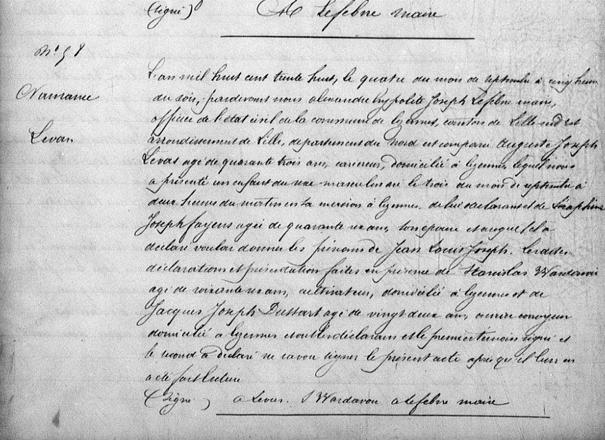 (signé) A Lefebre maire
N° 58
Naissance
Levas
L'an mil huit cent trente huit, le quatre du mois de septembre à cinq heures
du soir, pardevant nous alexandre hypolite Joseph Lefebre maire,
officier de l'état civil de la commune de Lezennes, canton de Lille sud est
arrondissement de Lille, departement du nord est comparu Auguste Joseph
Levas agé de quarante trois ans, carrieur, domicilié à Lezennes lequel nous
a présenté un enfant du sexe masculin né le trois du mois de septembre à
deux heures du matin en sa maison à Lezennes, de lui declarant et de Séraphine
Joseph agée de quarante ans, son épouse et auquel il a
declaré vouloir donner les prénoms de Jean Louis Joseph. Lesdites
déclarations et présentation faites en présence de Stanislas
agé de soixante ans, cultivateur, domicilié à Lezennes et de
Jacques Joseph Dussart agé de vingt deux ans, ouvrier
domicilié à Lezennes et le declarant et le premier temoins signé et
le second a déclaré ne savoir signer le présent acte après qu'il leur en
a été fait lecture
(Signé) a Levas. S a Lefebre maire